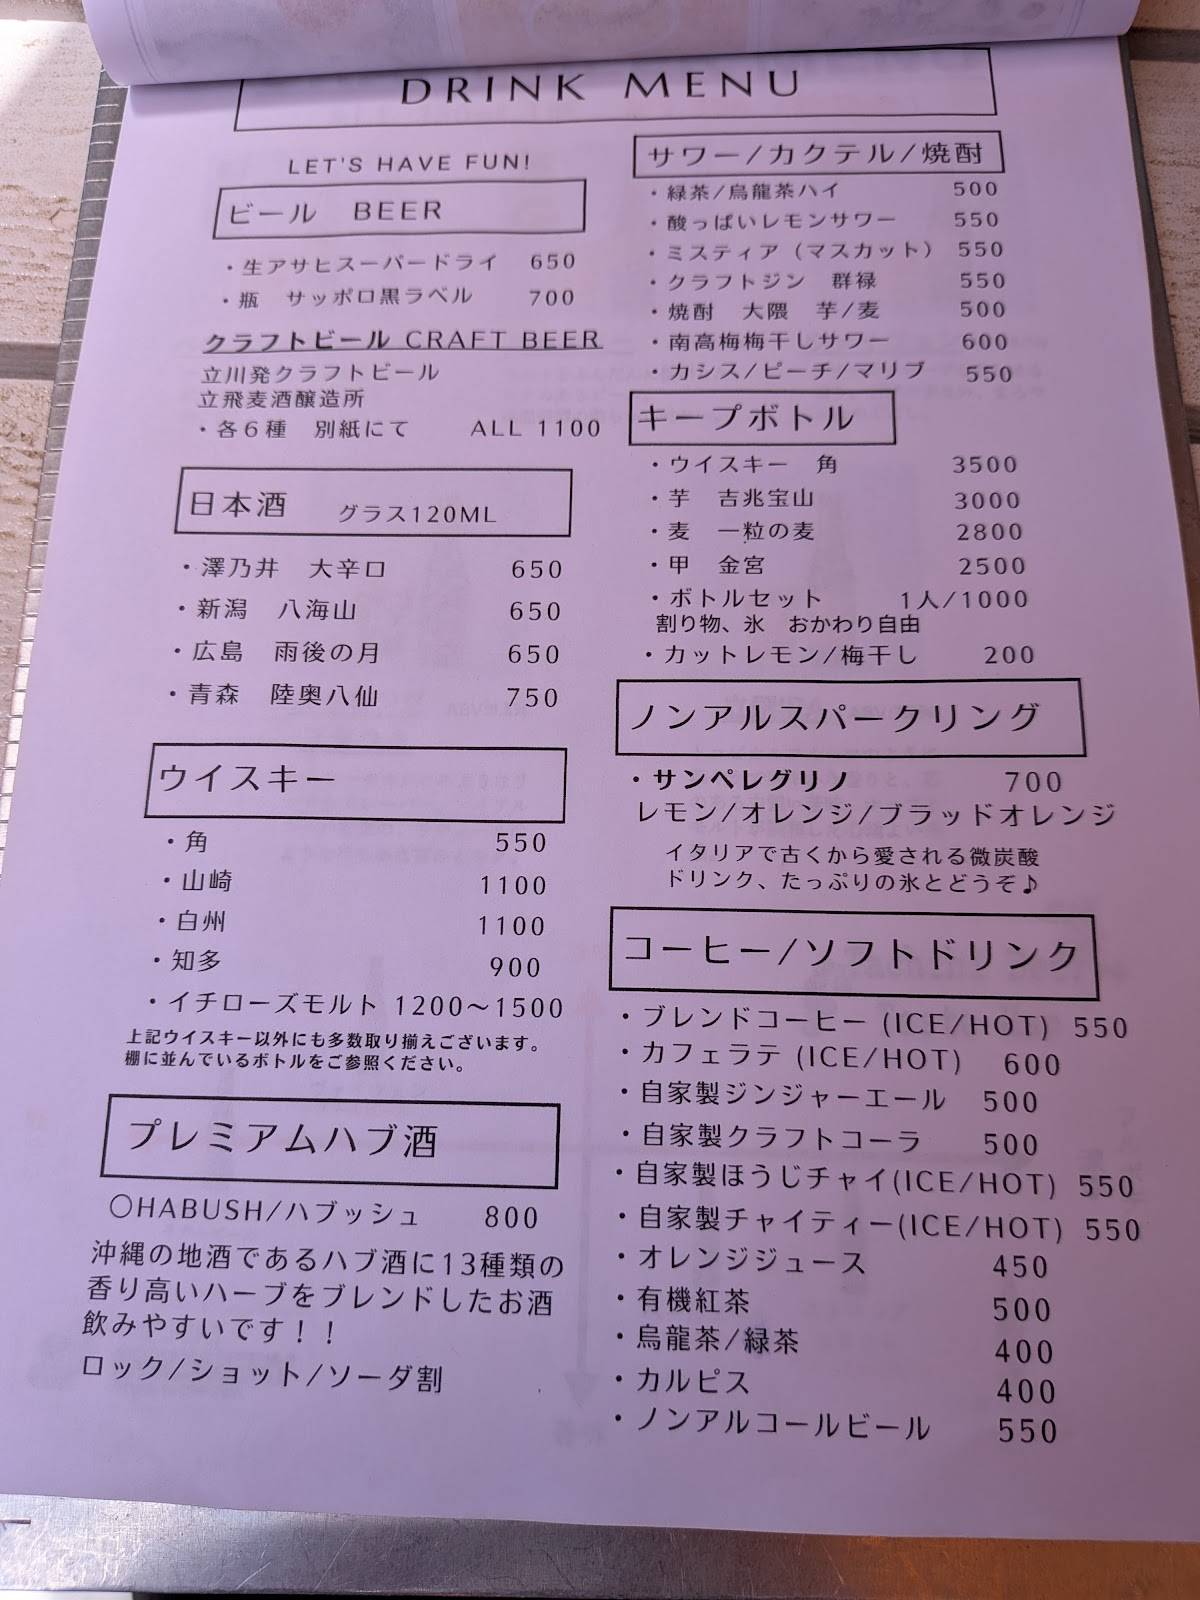 DRINK MENU
LET'S HAVE FUN!
ビール BEER
・生アサヒスーパードライ 650
・瓶 サッポロ黒ラベル 700
クラフトビール CRAFT BEER
立川発クラフトビール
立飛麦酒醸造所
・各6種 別紙にて ALL 1100
日本酒 グラス120ML
・澤乃井 大辛口 650
・新潟 八海山 650
・広島 雨後の月 650
・青森 陸奥八仙 750
ウイスキー
・角 550
・山崎 1100
・白州 1100
・知多 900
・イチローズモルト 1200～1500
上記ウイスキー以外にも多数取り揃えございます。
棚に並んでいるボトルをご参照ください。
プレミアムハブ酒
〇HABUSH/ハブッシュ 800
沖縄の地酒であるハブ酒に13種類の
香り高いハーブをブレンドしたお酒
飲みやすいです！！
ロック/ショット/ソーダ割
サワー/カクテル/焼酎
・緑茶/烏龍茶ハイ 500
・酸っぱいレモンサワー 550
・ミスティア（マスカット） 550
・クラフトジン 群禄 550
・焼酎 大隈 芋/麦 500
・南高梅梅干しサワー 600
・カシス/ピーチ/マリブ 550
キープボトル
・ウイスキー 角 3500
・芋 吉兆宝山 3000
・麦 一粒の麦 2800
・甲 金宮 2500
・ボトルセット 1人/1000
割り物、氷 おかわり自由
・カットレモン/梅干し 200
ノンアルスパークリング
・サンペレグリノ 700
レモン/オレンジ/ブラッドオレンジ
イタリアで古くから愛される微炭酸
ドリンク、たっぷりの氷とどうぞ♪
コーヒー/ソフトドリンク
・ブレンドコーヒー (ICE/HOT) 550
・カフェラテ (ICE/HOT) 600
・自家製ジンジャーエール 500
・自家製クラフトコーラ 500
・自家製ほうじチャイ(ICE/HOT) 550
・自家製チャイティー(ICE/HOT) 550
・オレンジジュース 450
・有機紅茶 500
・烏龍茶/緑茶 400
・カルピス 400
・ノンアルコールビール 550